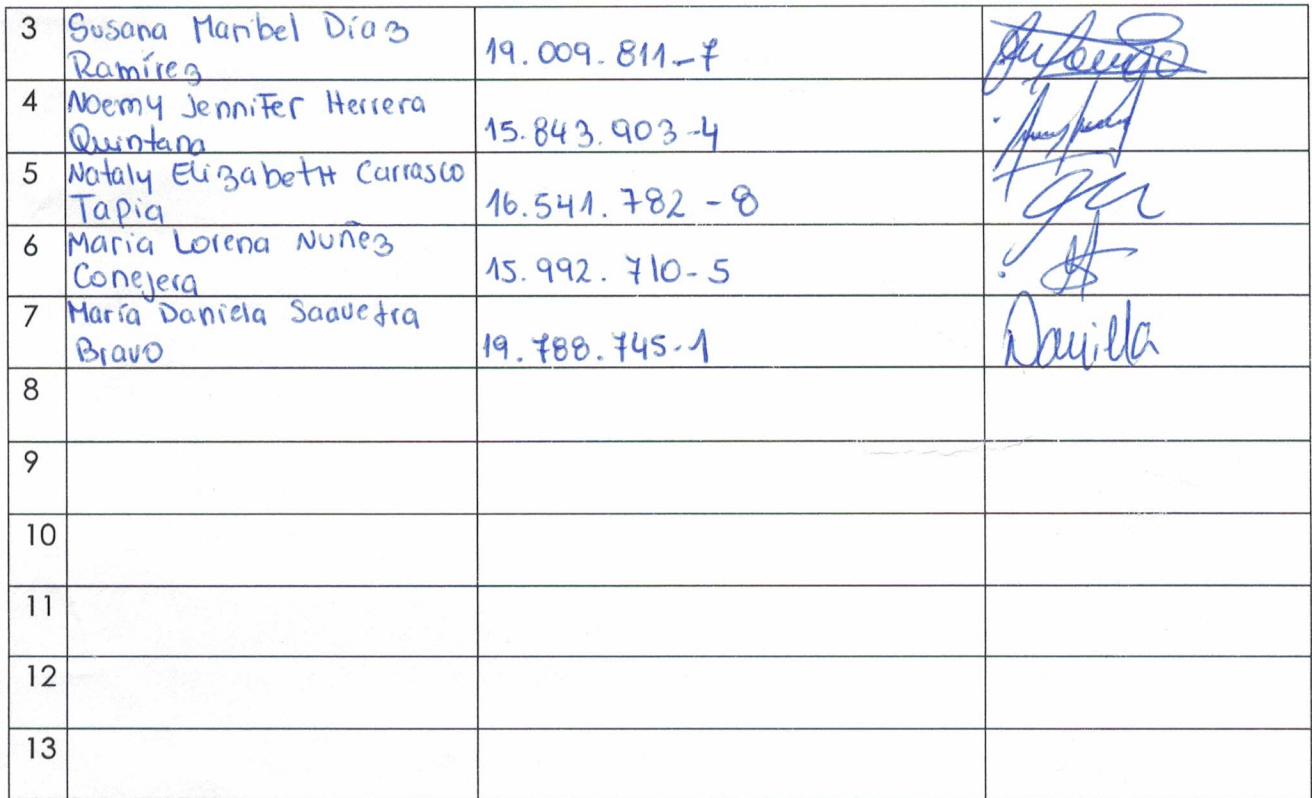 3 Susana Maribel Díaz
Ramírez 19.009.811-7
4 Noemy Jennifer Herrera
Quintana 15.843.903-4
5 Nataly Elizabeth Carrasco
Tapia 16.541.782-8
6 Maria Lorena Nuñez
Conejera 15.992.710-5
7 María Daniela Saavedra
Bravo 19.788.745-1 Daniella
8
9
10
11
12
13